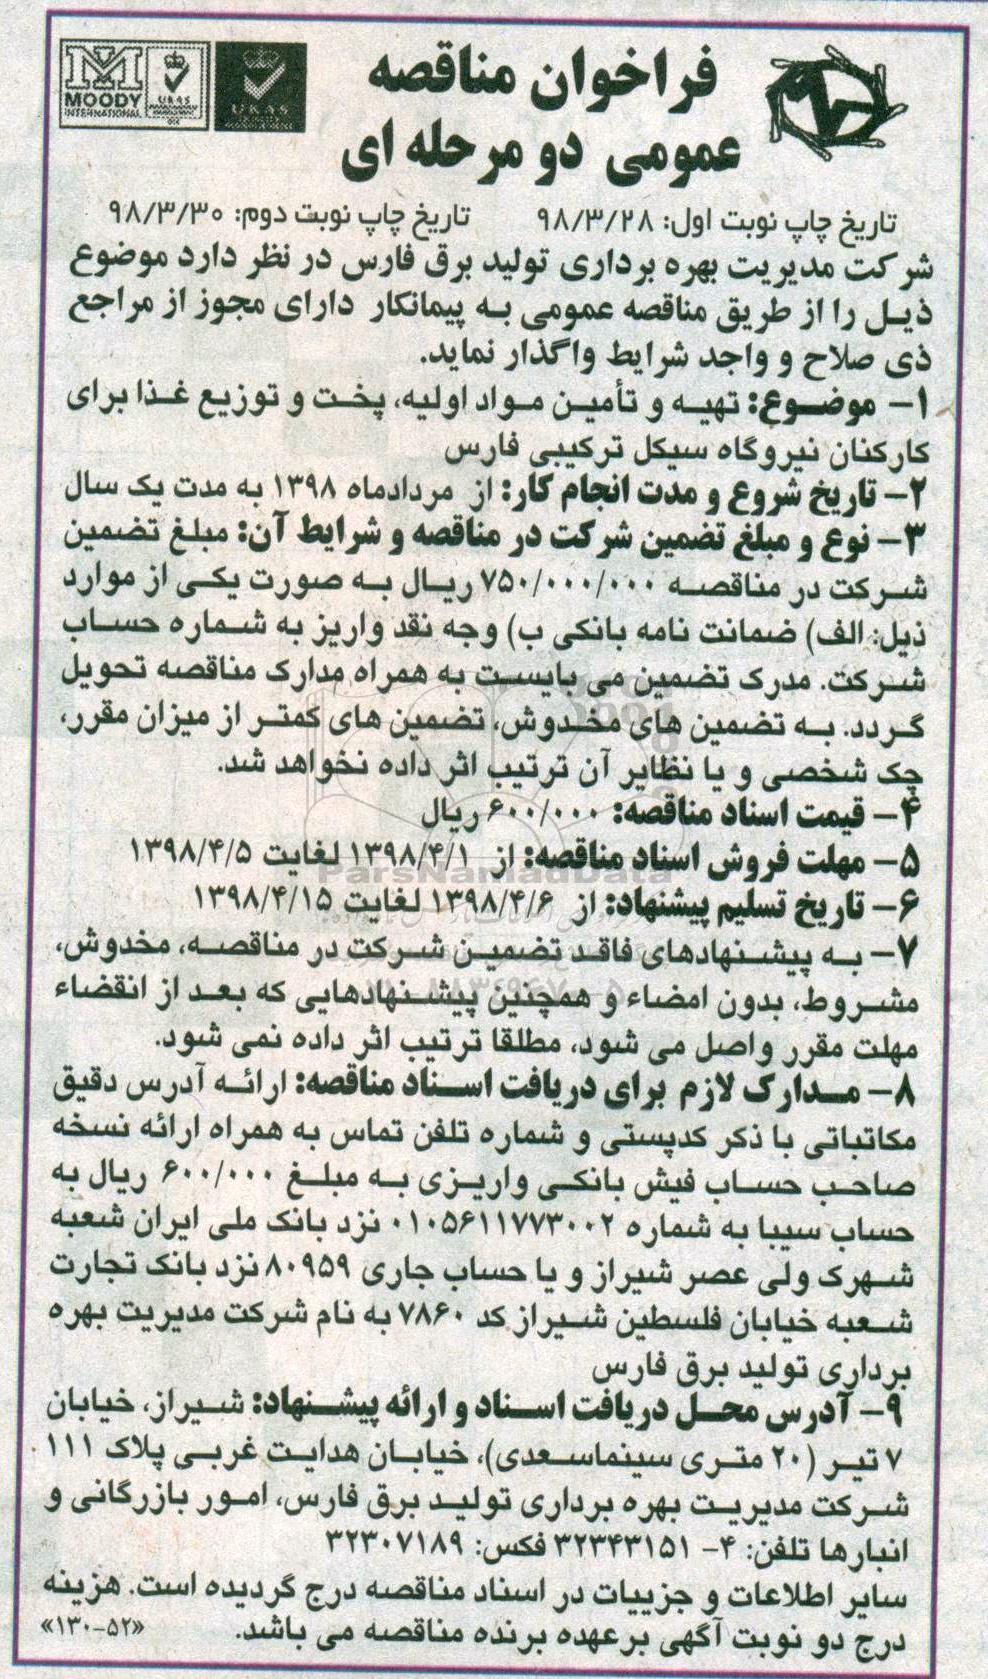 فراخوان مناقصه
عمومی دو مرحله ای
MOODY
INTERNATIONAL
UKAS
UKAS
تاریخ چاپ نوبت اول: ۹۸/۳/۲۸ تاریخ چاپ نوبت دوم: ۹۸/۳/۳۰
شرکت مدیریت بهره برداری تولید برق فارس در نظر دارد موضوع
ذیل را از طریق مناقصه عمومی به پیمانکار دارای مجوز از مراجع
ذی صلاح و واجد شرایط واگذار نماید.
۱- موضوع: تهیه و تأمین مواد اولیه، پخت و توزیع غذا برای
کارکنان نیروگاه سیکل ترکیبی فارس
۲- تاریخ شروع و مدت انجام کار: از مردادماه ۱۳۹۸ به مدت یک سال
۳- نوع و مبلغ تضمین شرکت در مناقصه و شرایط آن: مبلغ تضمین
شرکت در مناقصه ۷۵۰/۰۰۰/۰۰۰ ریال به صورت یکی از موارد
ذیل: الف) ضمانت نامه بانکی ب) وجه نقد واریز به شماره حساب
شرکت. مدرک تضمین می بایست به همراه مدارک مناقصه تحویل
گردد. به تضمین های مخدوش، تضمین های کمتر از میزان مقرر،
چک شخصی و یا نظایر آن ترتیب اثر داده نخواهد شد.
۴- قیمت اسناد مناقصه: ۶۰۰/۰۰۰ ریال
۵- مهلت فروش اسناد مناقصه: از ۱۳۹۸/۴/۱ لغایت ۱۳۹۸/۴/۵
ParsNamadData
۶- تاریخ تسلیم پیشنهاد: از ۱۳۹۸/۴/۶ لغایت ۱۳۹۸/۴/۱۵
۷- به پیشنهادهای فاقد تضمین شرکت در مناقصه، مخدوش،
مشروط، بدون امضاء و همچنین پیشنهادهایی که بعد از انقضاء
مهلت مقرر واصل می شود، مطلقا ترتیب اثر داده نمی شود.
۸- مدارک لازم برای دریافت اسناد مناقصه: ارائه آدرس دقیق
مکاتباتی با ذکر کدپستی و شماره تلفن تماس به همراه ارائه نسخه
صاحب حساب فیش بانکی واریزی به مبلغ ۶۰۰/۰۰۰ ریال به
حساب سیبا به شماره ۰۱۰۵۶۱۱۷۷۳۰۰۲ نزد بانک ملی ایران شعبه
شهرک ولی عصر شیراز و یا حساب جاری ۸۰۹۵۹ نزد بانک تجارت
شعبه خیابان فلسطین شیراز کد ۷۸۶۰ به نام شرکت مدیریت بهره
برداری تولید برق فارس
۹- آدرس محل دریافت اسناد و ارائه پیشنهاد: شیراز، خیابان
۷ تیر (۲۰ متری سینماسعدی)، خیابان هدایت غربی پلاک ۱۱۱
شرکت مدیریت بهره برداری تولید برق فارس، امور بازرگانی و
انبارها تلفن: ۴- ۳۲۳۴۳۱۵۱ فکس: ۳۲۳۰۷۱۸۹
سایر اطلاعات و جزییات در اسناد مناقصه درج گردیده است. هزینه
درج دو نوبت آگهی برعهده برنده مناقصه می باشد. «۱۳۰-۵۲»